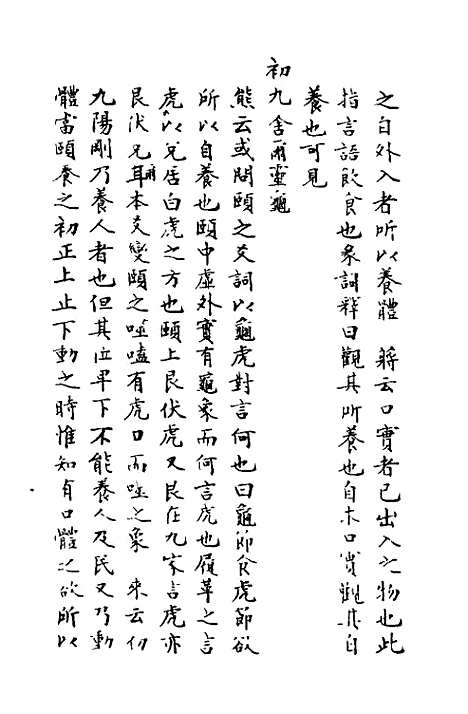 之自外入者所以養體　蔣云口實者已出入之物也此
指言語飲食也彖詞釋曰觀其所養也自求口實觀其自
養也可見
初九舍爾靈龜
熊云或問頤之爻詞以龜虎對言何也曰龜節食虎節欲
所以自養也頤中虛外實有龜象而何言虎也履革之言
虎以兌居白虎之方也頤上艮伏虎又艮在九家言虎亦
艮伏兌耳本爻變頤之噬嗑有虎口而噬之象　來云初
九陽剛乃養人者也但其位卑下不能養人及民又乃動
體當頤養之初正上止下動之時惟知有口體之欲所以